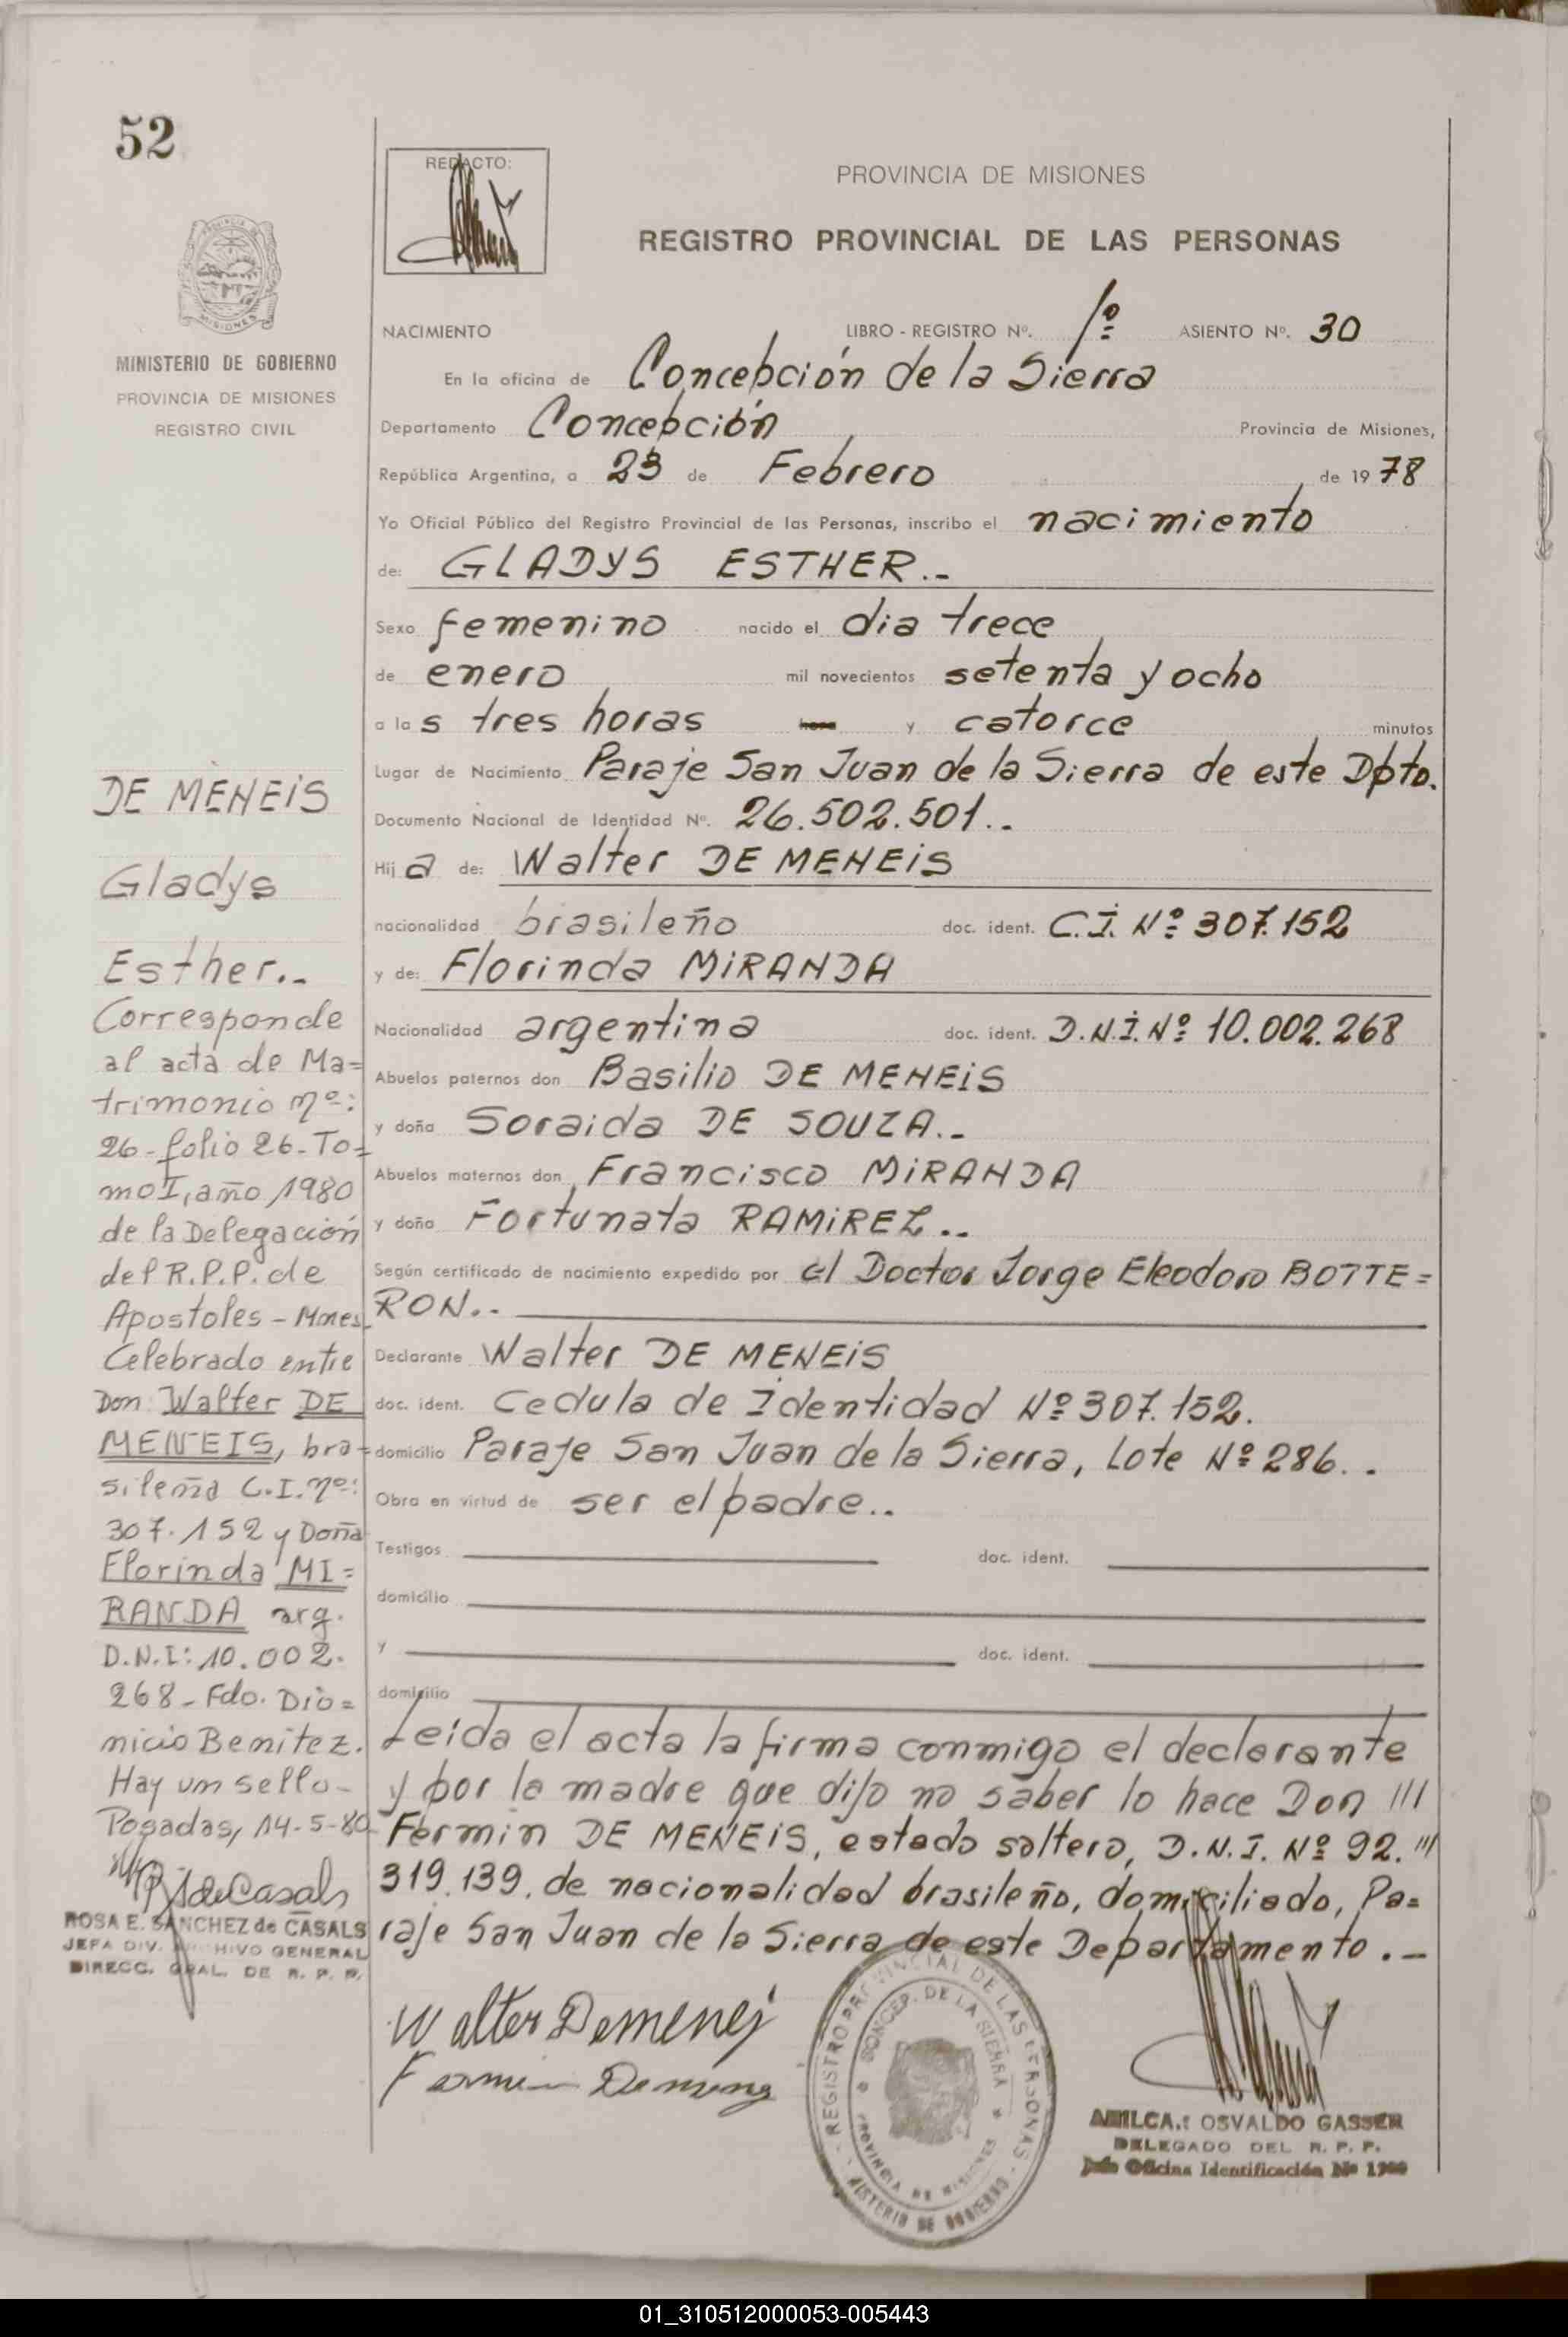 52
REDACTO:
PROVINCIA DE MISIONES
REGISTRO PROVINCIAL DE LAS PERSONAS
MISIONES
MINISTERIO DE GOBIERNO
PROVINCIA DE MISIONES
REGISTRO CIVIL
NACIMIENTO LIBRO - REGISTRO Nº. 1º ASIENTO Nº. 30
En la oficina de Concepción de la Sierra
Departamento Concepción Provincia de Misiones,
República Argentina, a 23 de Febrero de 1978
Yo Oficial Público del Registro Provincial de las Personas, inscribo el nacimiento
de: GLADYS ESTHER.-
Sexo femenino nacido el dia trece
de enero mil novecientos setenta y ocho
a las tres horas y catorce minutos
Lugar de Nacimiento Paraje San Juan de la Sierra de este Dpto.
Documento Nacional de Identidad Nº. 26.502.501..
Hija de: Walter DE MENEIS
nacionalidad brasileño doc. ident. C.I. Nº 307.152
y de: Florinda MIRANDA
Nacionalidad argentina doc. ident. D.N.I. Nº 10.002.268
Abuelos paternos don Basilio DE MENEIS
y doña Soraida DE SOUZA.-
Abuelos maternos don Francisco MIRANDA
y doña Fortunata RAMIREZ..
Según certificado de nacimiento expedido por el Doctor Jorge Eleodoro BOTTE=
RON..
Declarante Walter DE MENEIS
doc. ident. Cedula de Identidad Nº 307.152.
domicilio Paraje San Juan de la Sierra, Lote Nº 286..
Obra en virtud de ser el padre..
Testigos doc. ident.
domicilio
y doc. ident.
domicilio
Leida el acta la firma conmigo el declarante
y por la madre que dijo no saber lo hace Don ///
Fermin DE MENEIS, estado soltero, D.N.I. Nº 92.///
319.139, de nacionalidad brasileño, domiciliado, Pa=
raje San Juan de la Sierra de este Departamento.-
DE MENEIS
Gladys
Esther.-
Corresponde
al acta de Ma=
trimonio nº:
26-folio 26-To=
mo I, año 1980
de la Delegación
del R.P.P. de
Apostoles - Mnes
Celebrado entre
Don Walter DE
MENEIS, bra=
sileña C.I. nº:
307.152 y Doña
Florinda MI=
RANDA arg.
D.N.I: 10.002.
268-Fdo. Dio=
nicio Benitez.
Hay un sello-
Posadas, 14-5-80
RSdeCasals
ROSA E. SANCHEZ de CASALS
JEFA DIV. ARCHIVO GENERAL
DIRECC. GRAL. DE R. P. P.
Walter Demeneis
Fermin
REGISTRO PROVINCIAL DE LAS PERSONAS
CONCEP. DE LA SIERRA
PROVINCIA DE MISIONES
MINISTERIO DE GOBIERNO
AMILCAR OSVALDO GASSER
DELEGADO DEL R. P. P.
Jefe Oficina Identificación Nº 1900
01_310512000053-005443